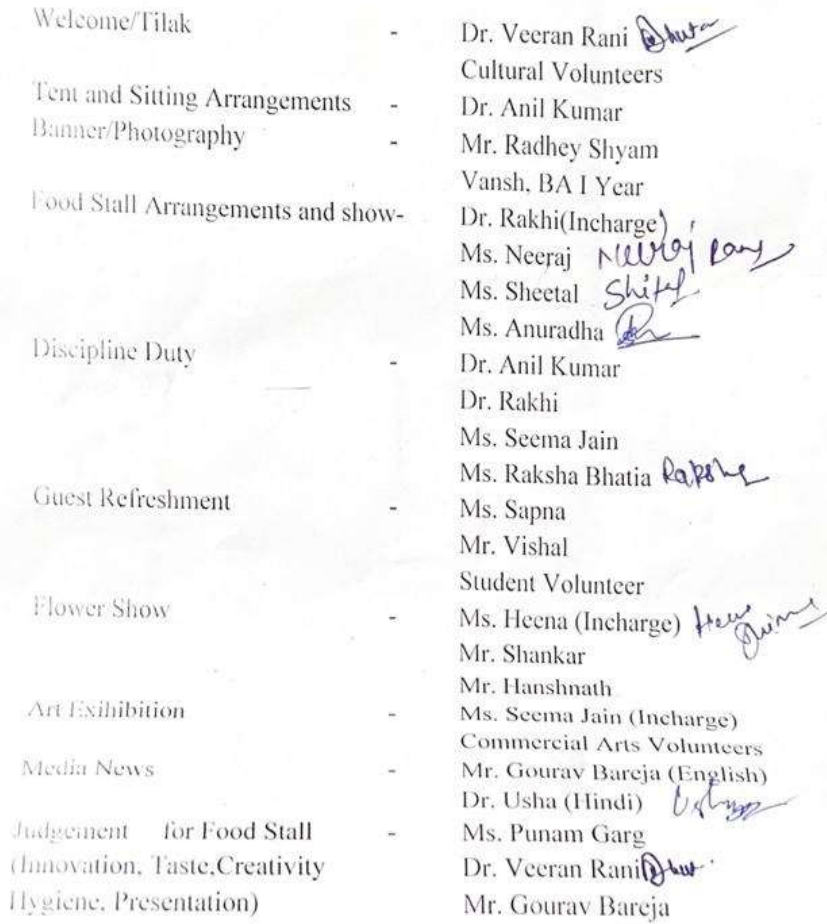 Welcome/Tilak - Dr. Veeran Rani
Cultural Volunteers
Tent and Sitting Arrangements - Dr. Anil Kumar
Banner/Photography - Mr. Radhey Shyam
Vansh, BA I Year
Food Stall Arrangements and show- Dr. Rakhi(Incharge)
Ms. Neeraj Neeraj
Ms. Sheetal Shital
Ms. Anuradha
Discipline Duty - Dr. Anil Kumar
Dr. Rakhi
Ms. Seema Jain
Ms. Raksha Bhatia Raksha
Guest Refreshment - Ms. Sapna
Mr. Vishal
Student Volunteer
Flower Show - Ms. Heena (Incharge)
Mr. Shankar
Mr. Hanshnath
Art Exihibition - Ms. Seema Jain (Incharge)
Commercial Arts Volunteers
Media News - Mr. Gourav Bareja (English)
Dr. Usha (Hindi)
Judgement for Food Stall - Ms. Punam Garg
(Innovation, Taste,Creativity Dr. Veeran Rani
Hygiene, Presentation) Mr. Gourav Bareja